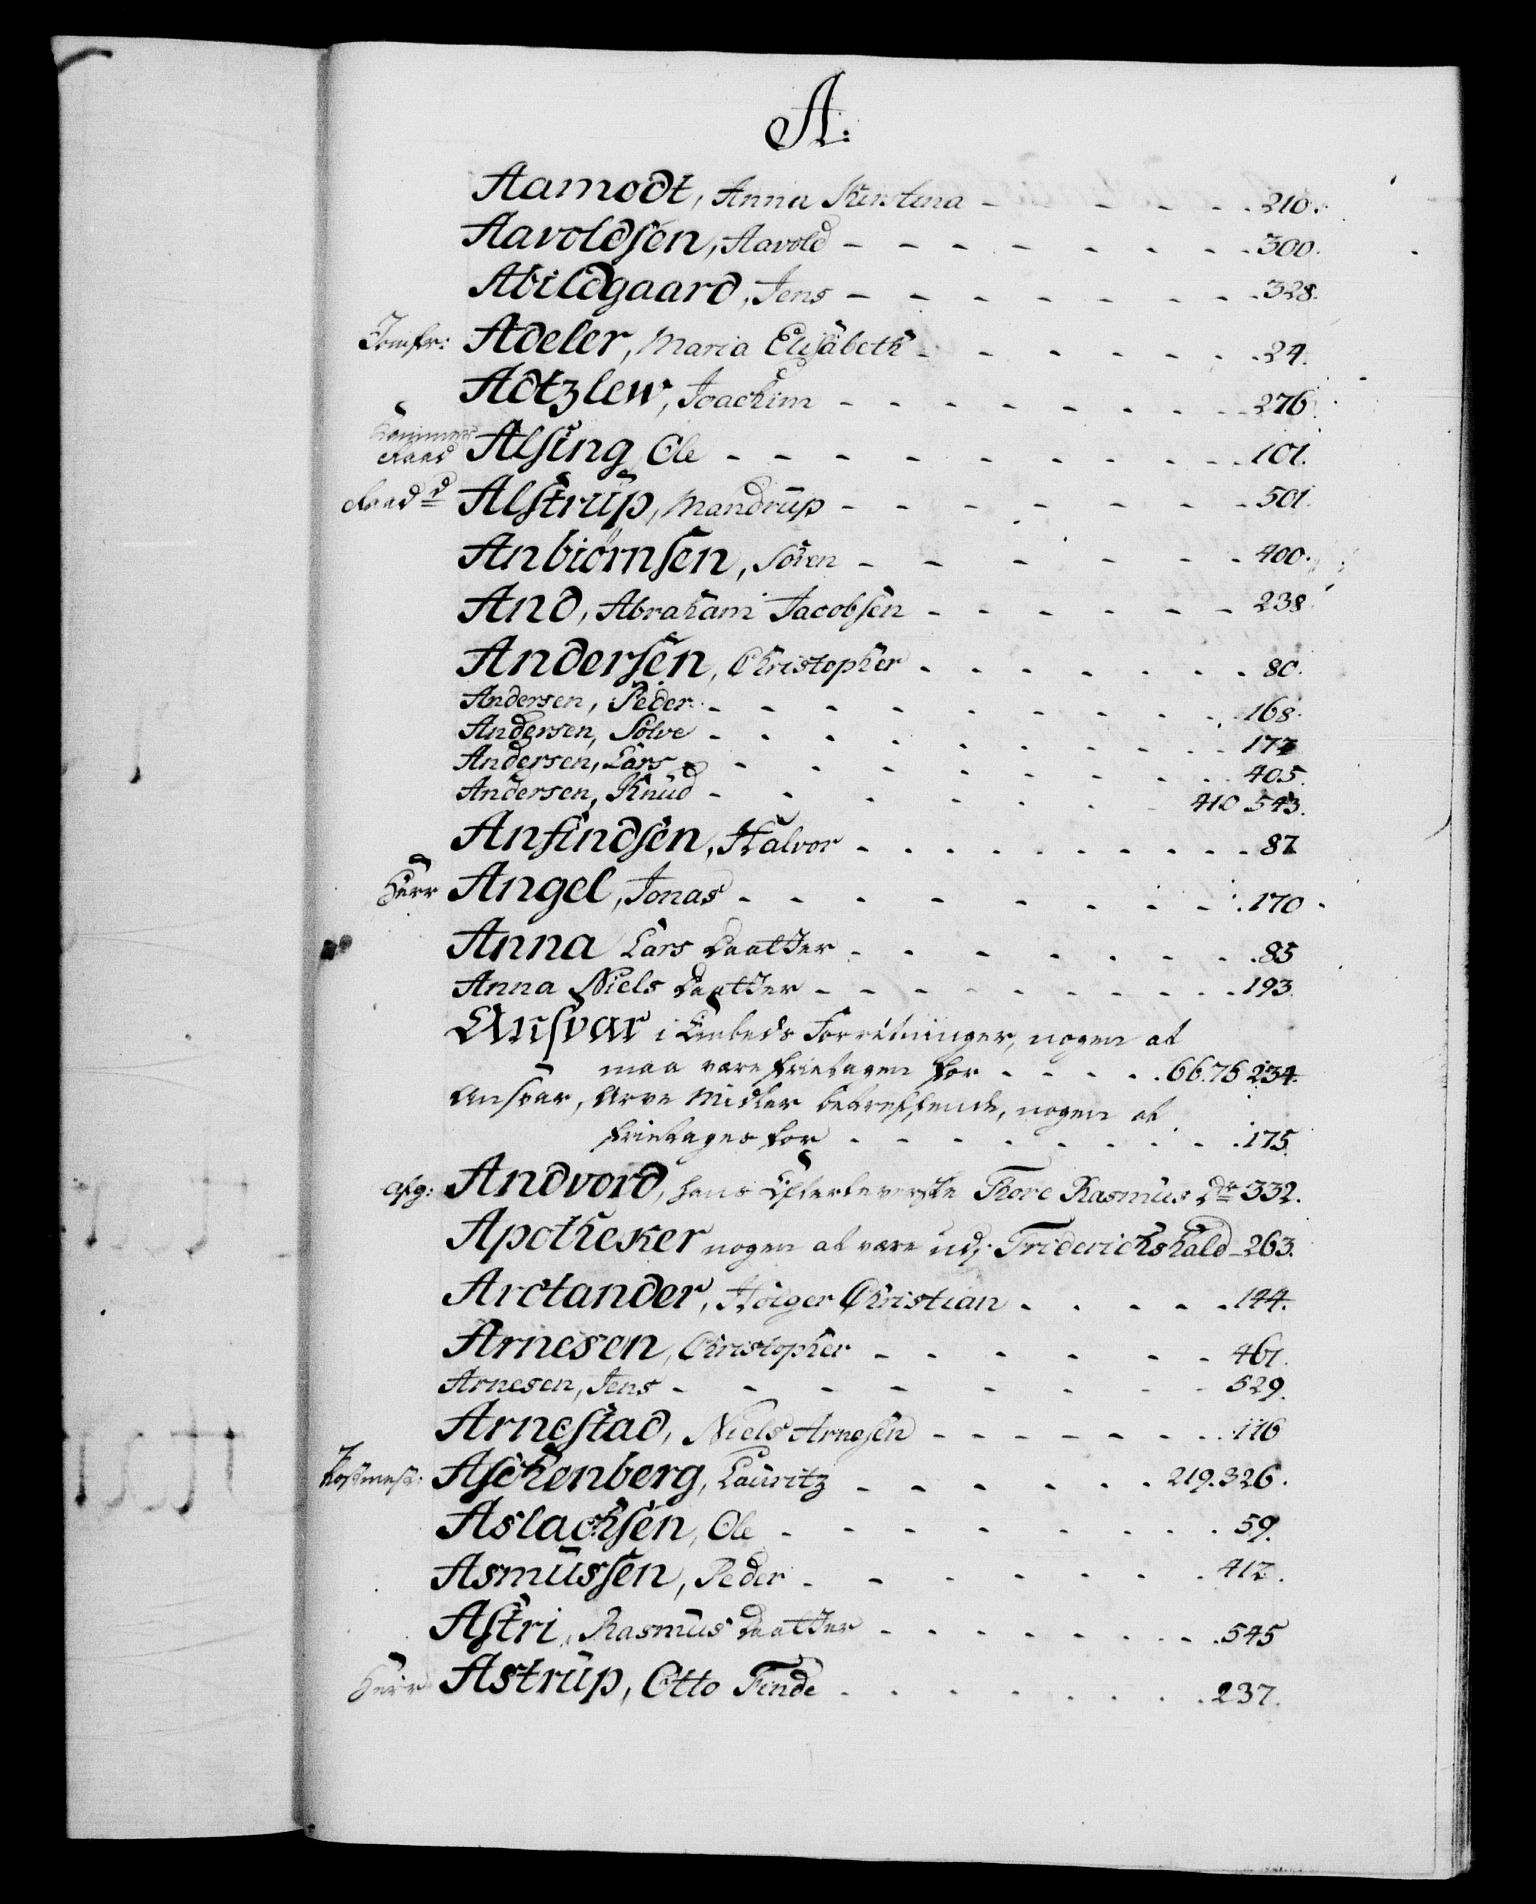 A:
Aamodt, Anna Kirstina - - - - - 210.
Aavoldsen, Aavold - - - - - - - - 300.
Abildgaard, Jens - - - - - - - - 328.
Jomfr: Adeler, Maria Elisabeth - - - - - - 24.
Adtzlew, Joachim - - - - - - - - 276.
Kammer
Raad Alsing, Ole - - - - - - - - - 101.
Raad Alstrüp, Mandrüp - - - - - - - 501.
Anbiørnsen, Sören - - - - - - 400.
And, Abraham Jacobsen - - - - - - 238.
Andersen, Christopher - - - - - - - 80.
Andersen, Peder - - - - - - - - - 168.
Andersen, Solve - - - - - - - - - 177
Andersen, Lars - - - - - - - - - 405.
Andersen, Knüd - - - - - - - 410 543.
Anfindsen, Halvor - - - - - - - - - 87.
Herr Angel, Jonas - - - - - - - - - 170.
Anna Lars Daatter - - - - - - - - 85
Anna Niels Daatter - - - - - - - - - 193.
Ansvar i Embeds Forretninger, nogen at
maa være frietagen for - - - - - 66. 75 234.
Ansvar, Arve Midler betreffende, nogen at
frietages for - - - - - - - - 175.
Afg: Andvord, hans Efterleverske Thore Rasmüs Dr 332.
Apotheker nogen at være udj Friderichshald - 263.
Arctander, Holger Christian - - - - - 144.
Arnesen, Christopher - - - - - - 461.
Arnesen, Jens - - - - - - - - 529.
Arnestad, Niels Arnesen - - - - - - - 116
Postmest: Aschenberg, Lauritz - - - - - - 219. 326.
Aslachsen, Ole - - - - - - - - 59.
Asmüssen, Peder - - - - - - - 412.
Astri, Rasmüs Daatter - - - - - - - - 545
Herr Astrüp, Otto Finde - - - - - - - - 237.